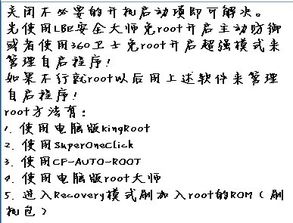 关闭不必要的开机启动项即可解决。
先使用LBE安全大师免root开启主动防御
或者使用360卫士免root开启超强模式来
管理自启程序！
如果不行就root以后用上述软件来管理
自启程序！
root方法有：
1. 使用电脑版KingRoot
2. 使用SuperOneClick
3. 使用CF-AUTO-ROOT
4. 使用电脑版root大师
5. 进入Recovery模式刷加入root的ROM（刷
机包）